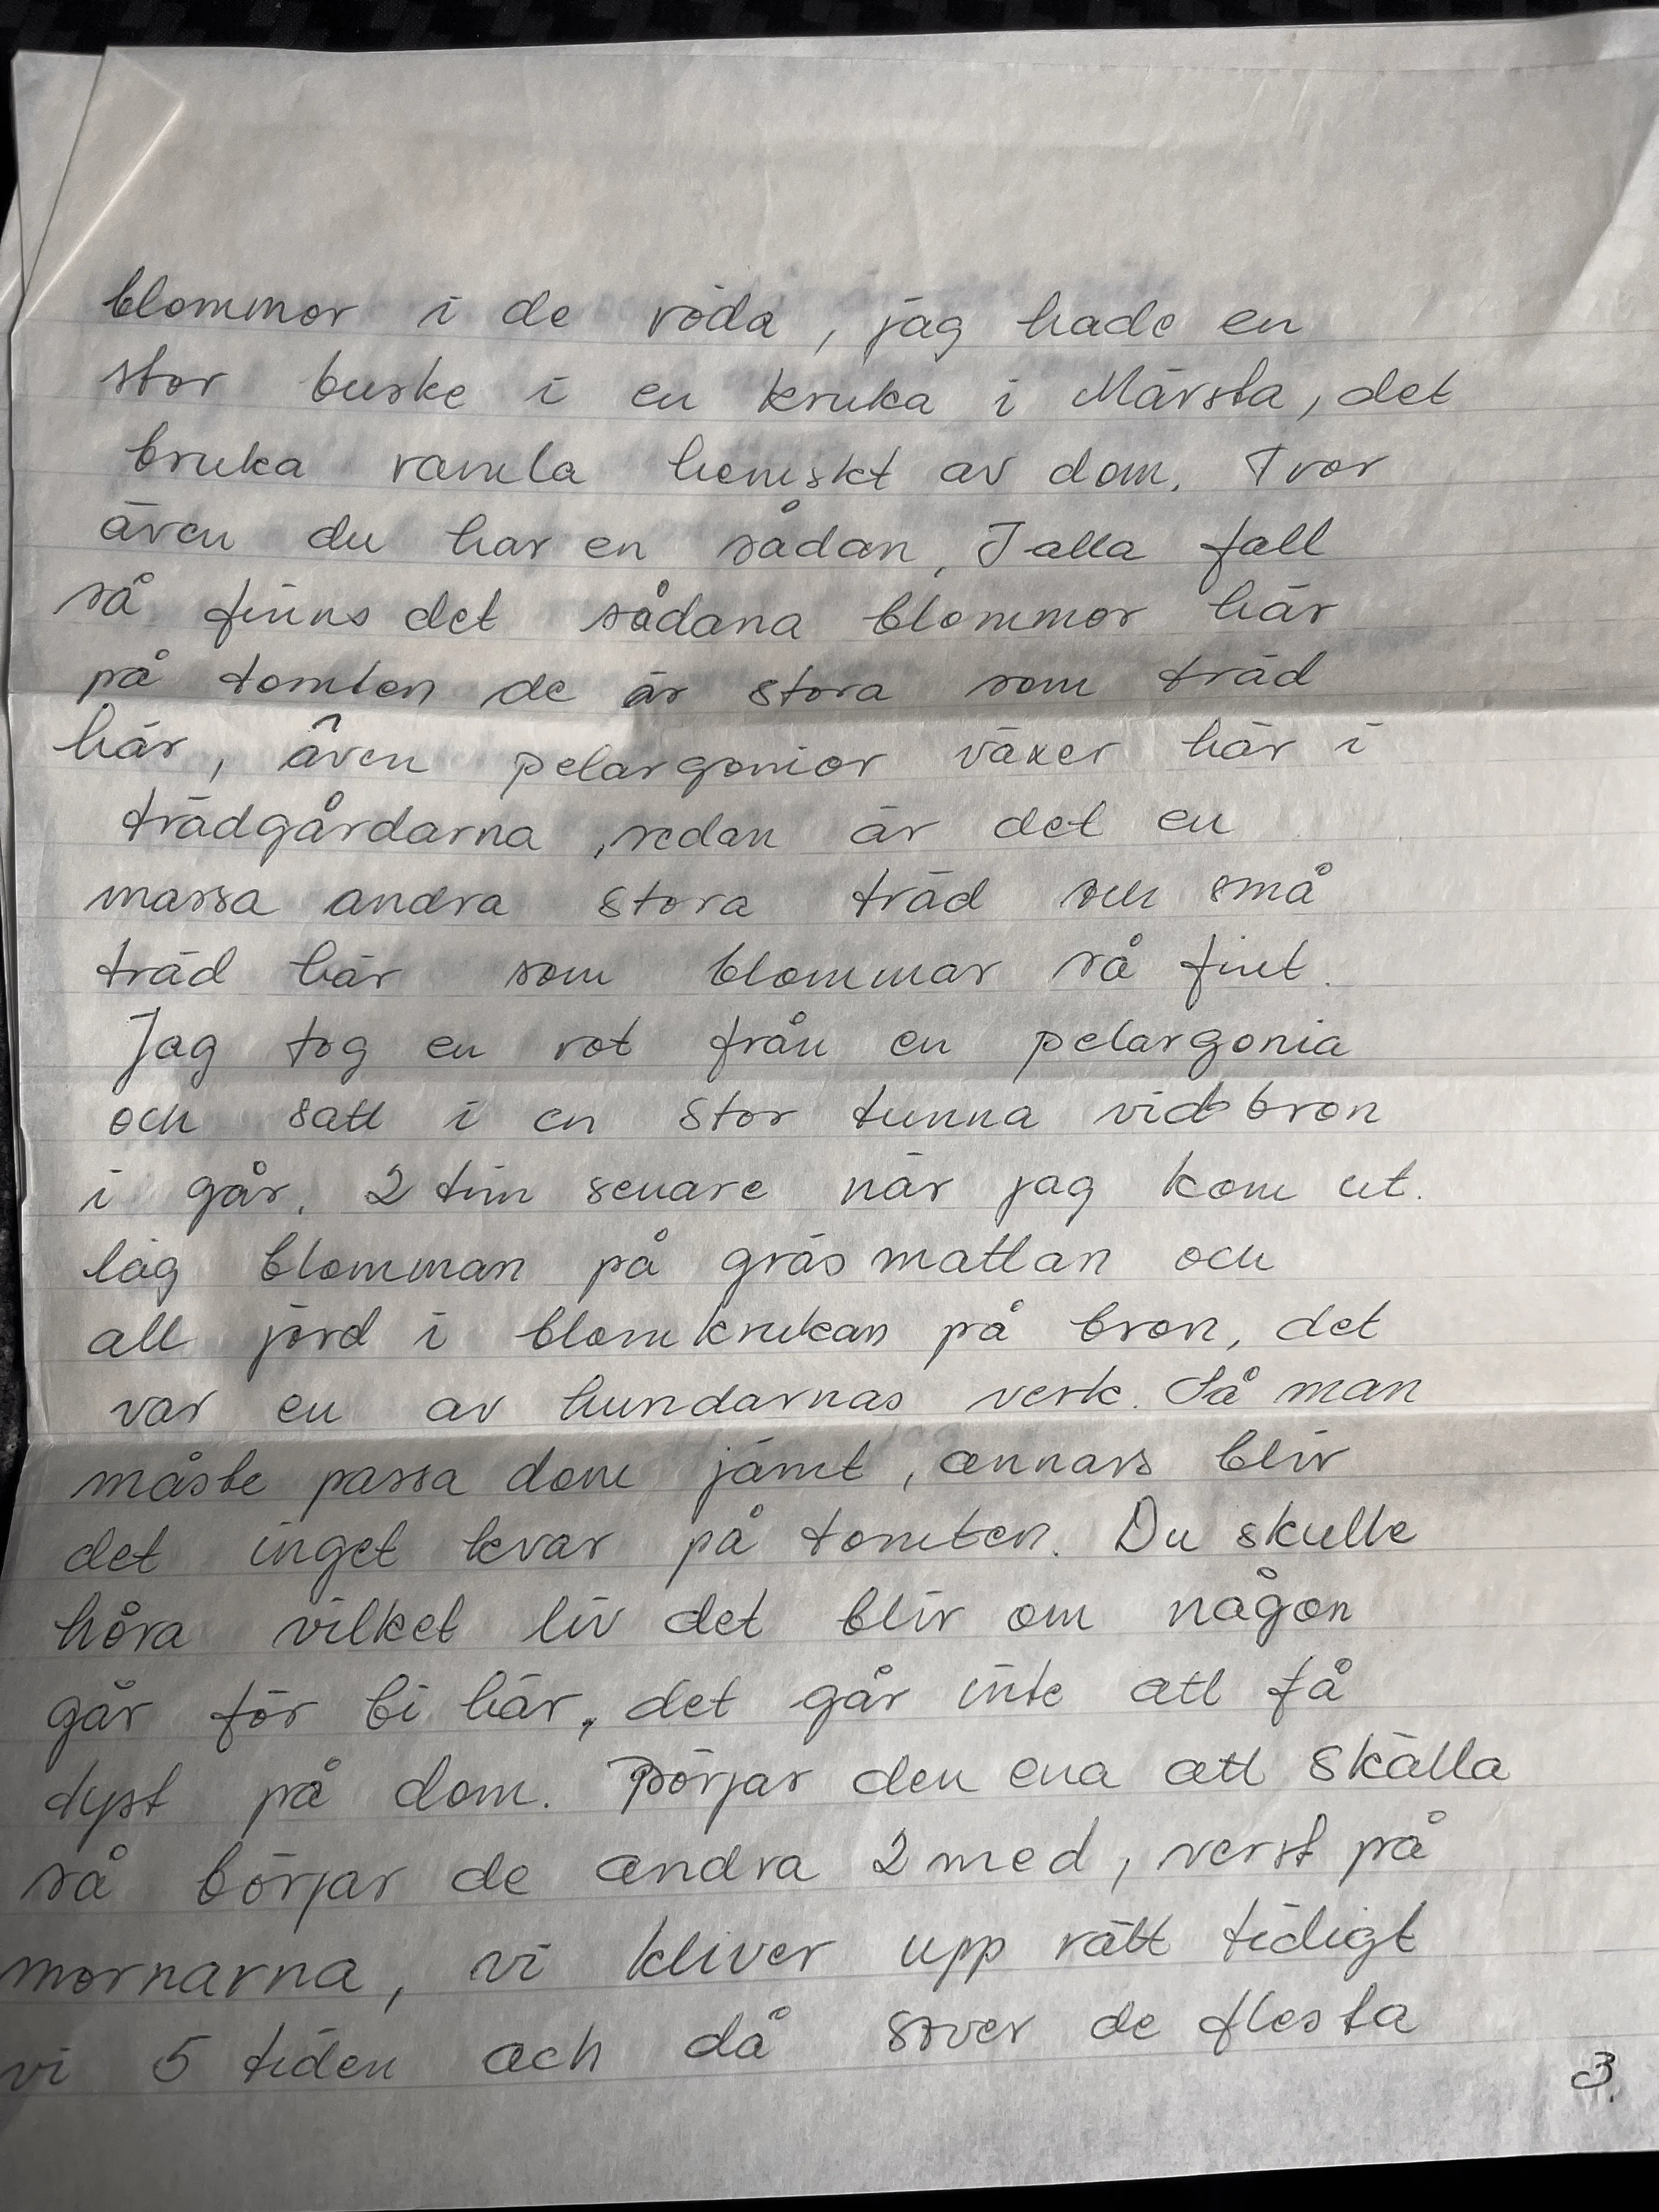 blommor i de röda, jag hade en
stor buske i en kruka i Märsta, det
bruka ramla hemskt av dom. Tror
även du har en sådan, I alla fall
så finns det sådana blommor här
på tomten de är stora som träd
här, även pelargonior växer här i
trädgårdarna, sedan är det en
massa andra stora träd och små
träd här som blommar så fint.
Jag tog en rot från en pelargonia
och satt i en stor tunna vid bron
i går. 2 tim senare när jag kom ut.
låg blomman på gräsmattan och
all jord i blomkrukan på bron, det
var en av hundarnas verk. Så man
måste passa dom jämt, annars blir
det inget kvar på tomten. Du skulle
höra vilket liv det blir om någon
går för bi här, det går inte att få
tyst på dom. Börjar den ena att skälla
så börjar de andra 2 med, verst på
mornarna, vi kliver upp rätt tidigt
vi 5 tiden och då sover de flesta
3.